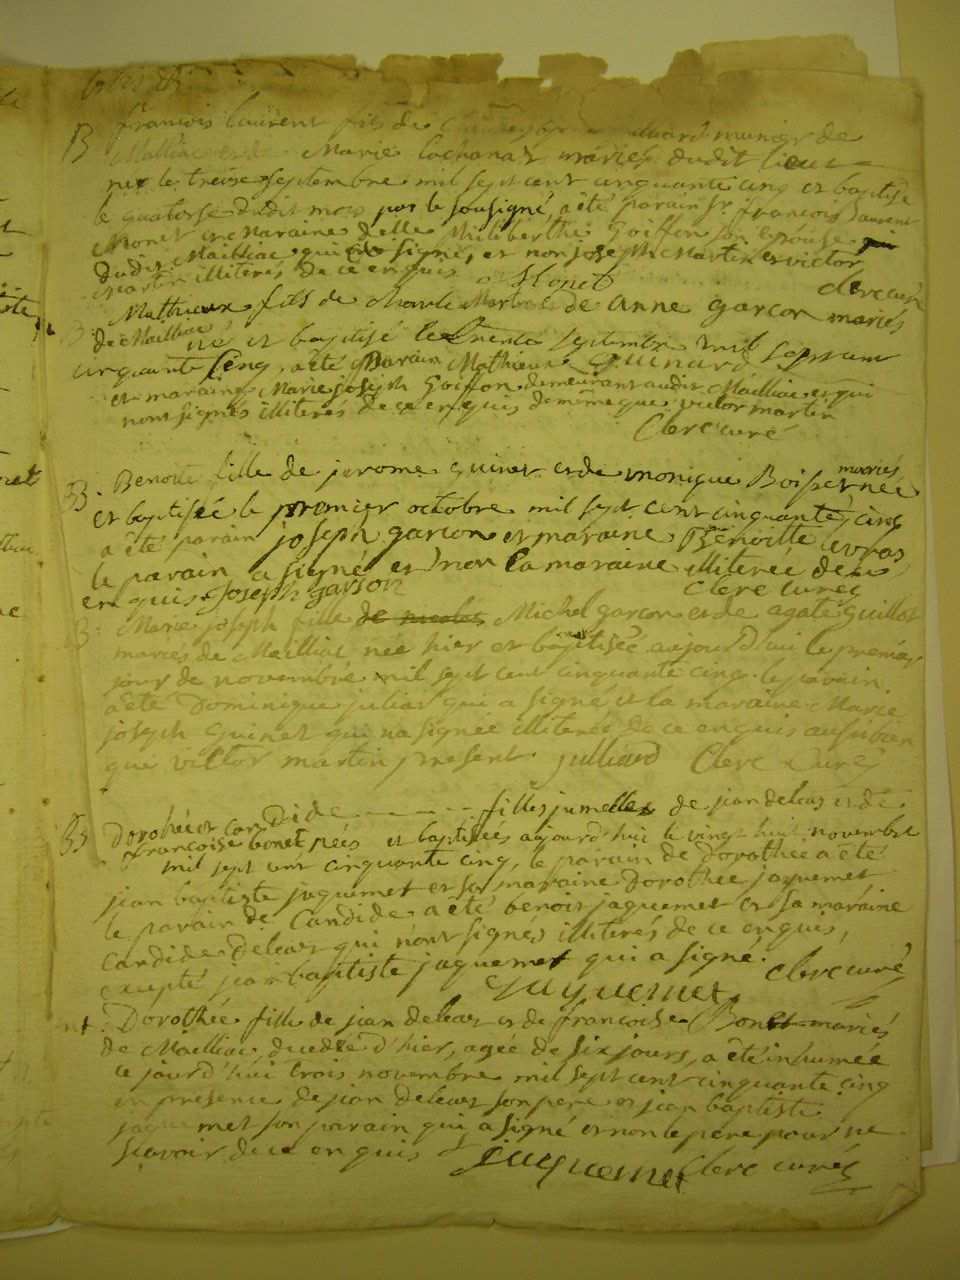 B françois laurent fils de munier de
Mailliac et de Marie Cochana mariés dudit lieu
né le treise septembre mil sept cent cinquante cinq et baptisé
le quatorse dudit mois par le sousigné a été parain Sr françois laurent
Monet et Maraine delle Goiffon son epouse
dudit Mailliac qui signés et non joseph Martin et victor
Martin illiteres de ce enquis Monet Clerc curé
B Mathieux fils de Martin et de anne garcon mariés
de Mailliac né et baptisé le trente septembre mil sept cent
cinquante cinq, a été Parain Mathieux Guinard
et maraine Marie joseph Goifon demeurant audit Mailliac et qui
nont signés illiteres de ce enquis de même que victor martin
Clerc curé
B. Benoite fille de jerome guinet et de monique Boisset mariés née
et baptisée le premier octobre mil sept cent cinquante cinq
a été parain joseph garcon et maraine Benoitte
le parain a signé et non la maraine illiterée de ce
enquis. Joseph garson Clerc curé
B. Marie joseph fille de nicolas Michel garcon et de agate guillot
mariés de Mailliac née hier et baptisée aujourd'hui le premier
jour de novembre mil sept cent cinquante cinq. le parain
a été Dominique juliar qui a signé et la maraine Marie
joseph Guinet qui na signée illiterée de ce enquis aussi bien
que victor martin present. julliard Clerc Curé
B Dorothée et Candide filles jumelles de jean deleas et de
françoise bonet nées et baptisées aujourd'hui le vingt huit novembre
mil sept cent cinquante cinq, le parain de Dorothée a été
jean baptiste jaquemet et sa maraine Dorothée jaquemet
le parain de Candide a été benoit jaquemet et sa maraine
Candide Deleas qui n'ont signés illiterés de ce enquis,
excepté jean baptiste jaquemet qui a signé. Clerc curé
Juyuemet
Dorothée fille de jean deleas et de françoise Bonet mariés
de Mailliac, decedée d'hier, agée de six jours, a été inhumée
ce jourd'hui trois novembre mil sept cent cinquante cinq
en presence de jean deleas son pere et jean baptiste
jaquemet son parain qui a signé et non le pere pour ne
scavoir de ce enquis Juyuemet Clerc curé